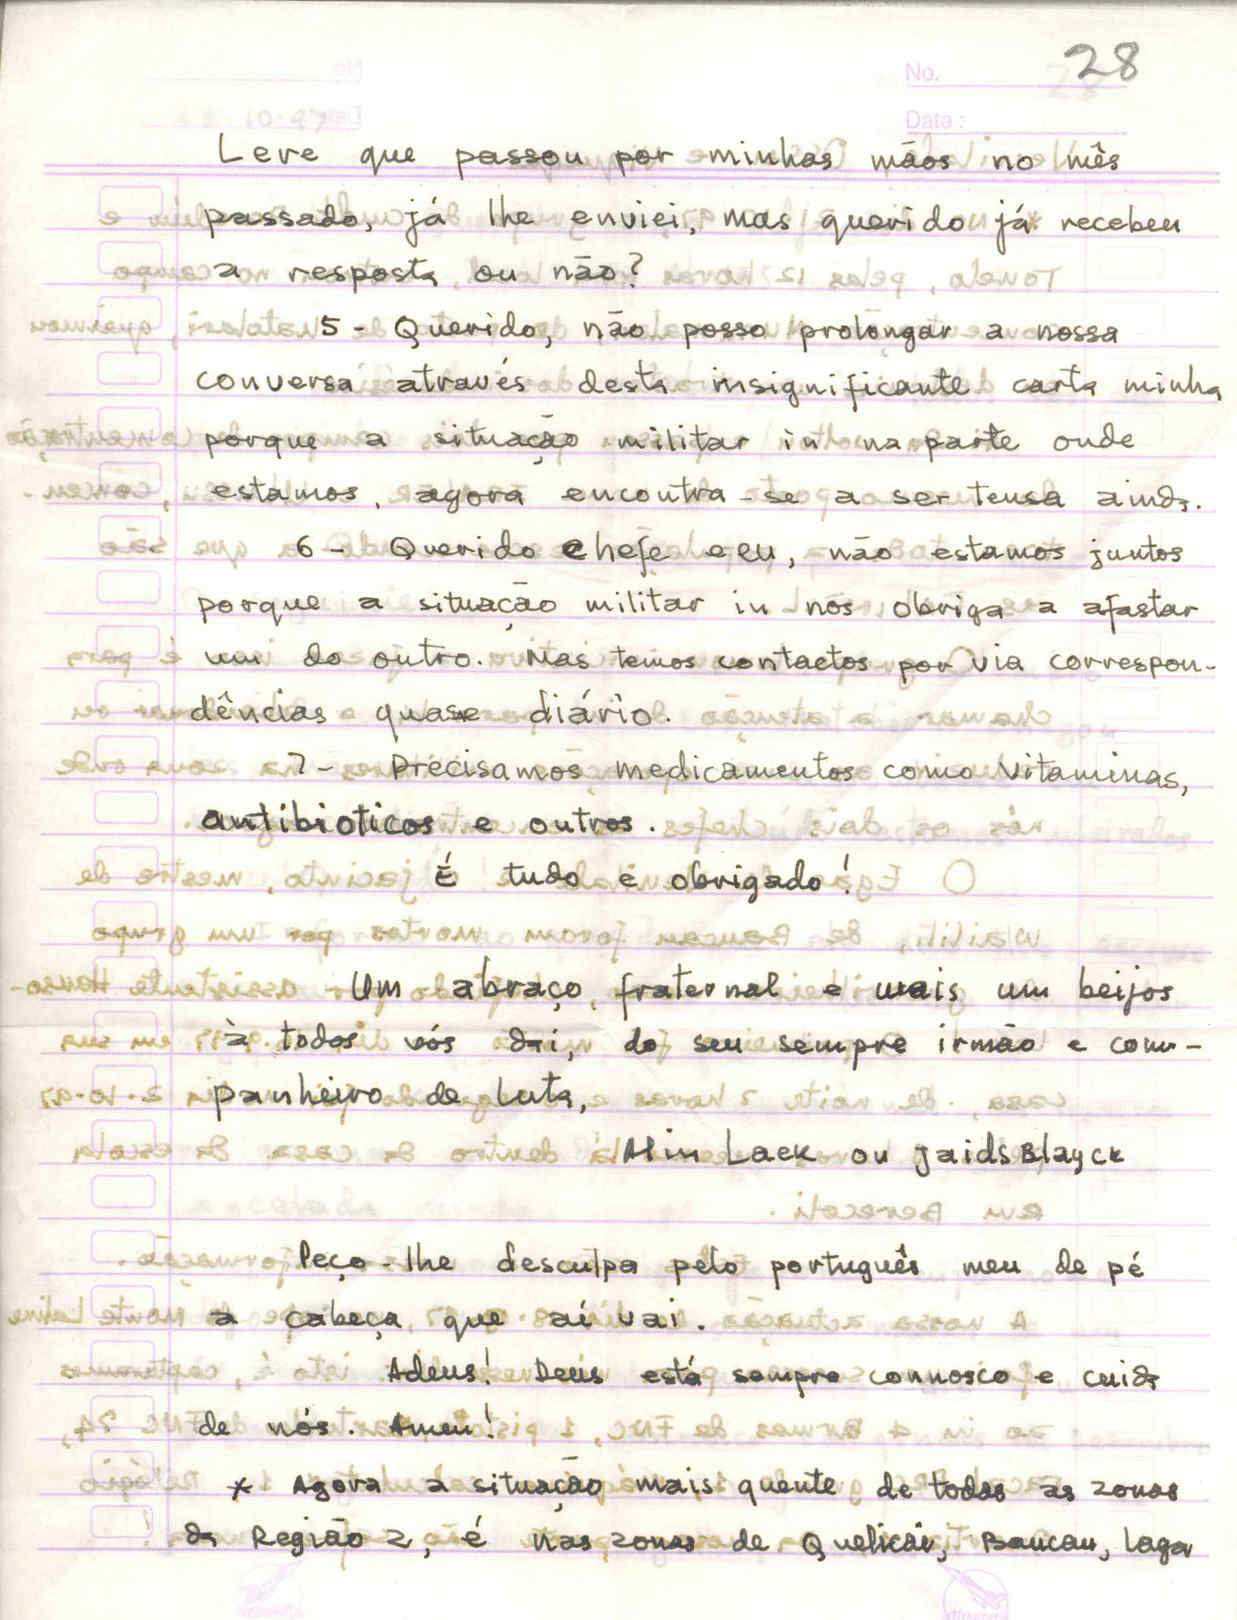 28
No.
Date :
Leve que passou por minhas mãos no mês
passado, já lhe enviei, mas querido já recebeu
a resposta ou não?
5 - Querido, não posso prolongar a nossa
conversa através desta insignificante carta minha
porque a situação militar in na parte onde
estamos, agora encontra-se a ser tensa ainda.
6 - Querido chefe e eu, não estamos juntos
porque a situação militar in nos obriga a afastar
um do outro. Mas temos contactos por via correspon-
dências quase diário.
7 - Precisamos medicamentos como vitaminas,
antibioticos e outros.
É tudo e obrigado!
Um abraço fraternal e mais um beijos
à todos vós daí, do seu sempre irmão e com-
panheiro de luta,
Alin Laek ou JaidsBlayck
Peço-lhe desculpa pelo português meu de pé
a cabeça que aí vai.
Adeus! Deus está sempre connosco e cuida
de nós. Amen!
* Agora a situação mais quente de todas as zonas
da Região 2, é nas zonas de Quelicai, Baucau, Laga